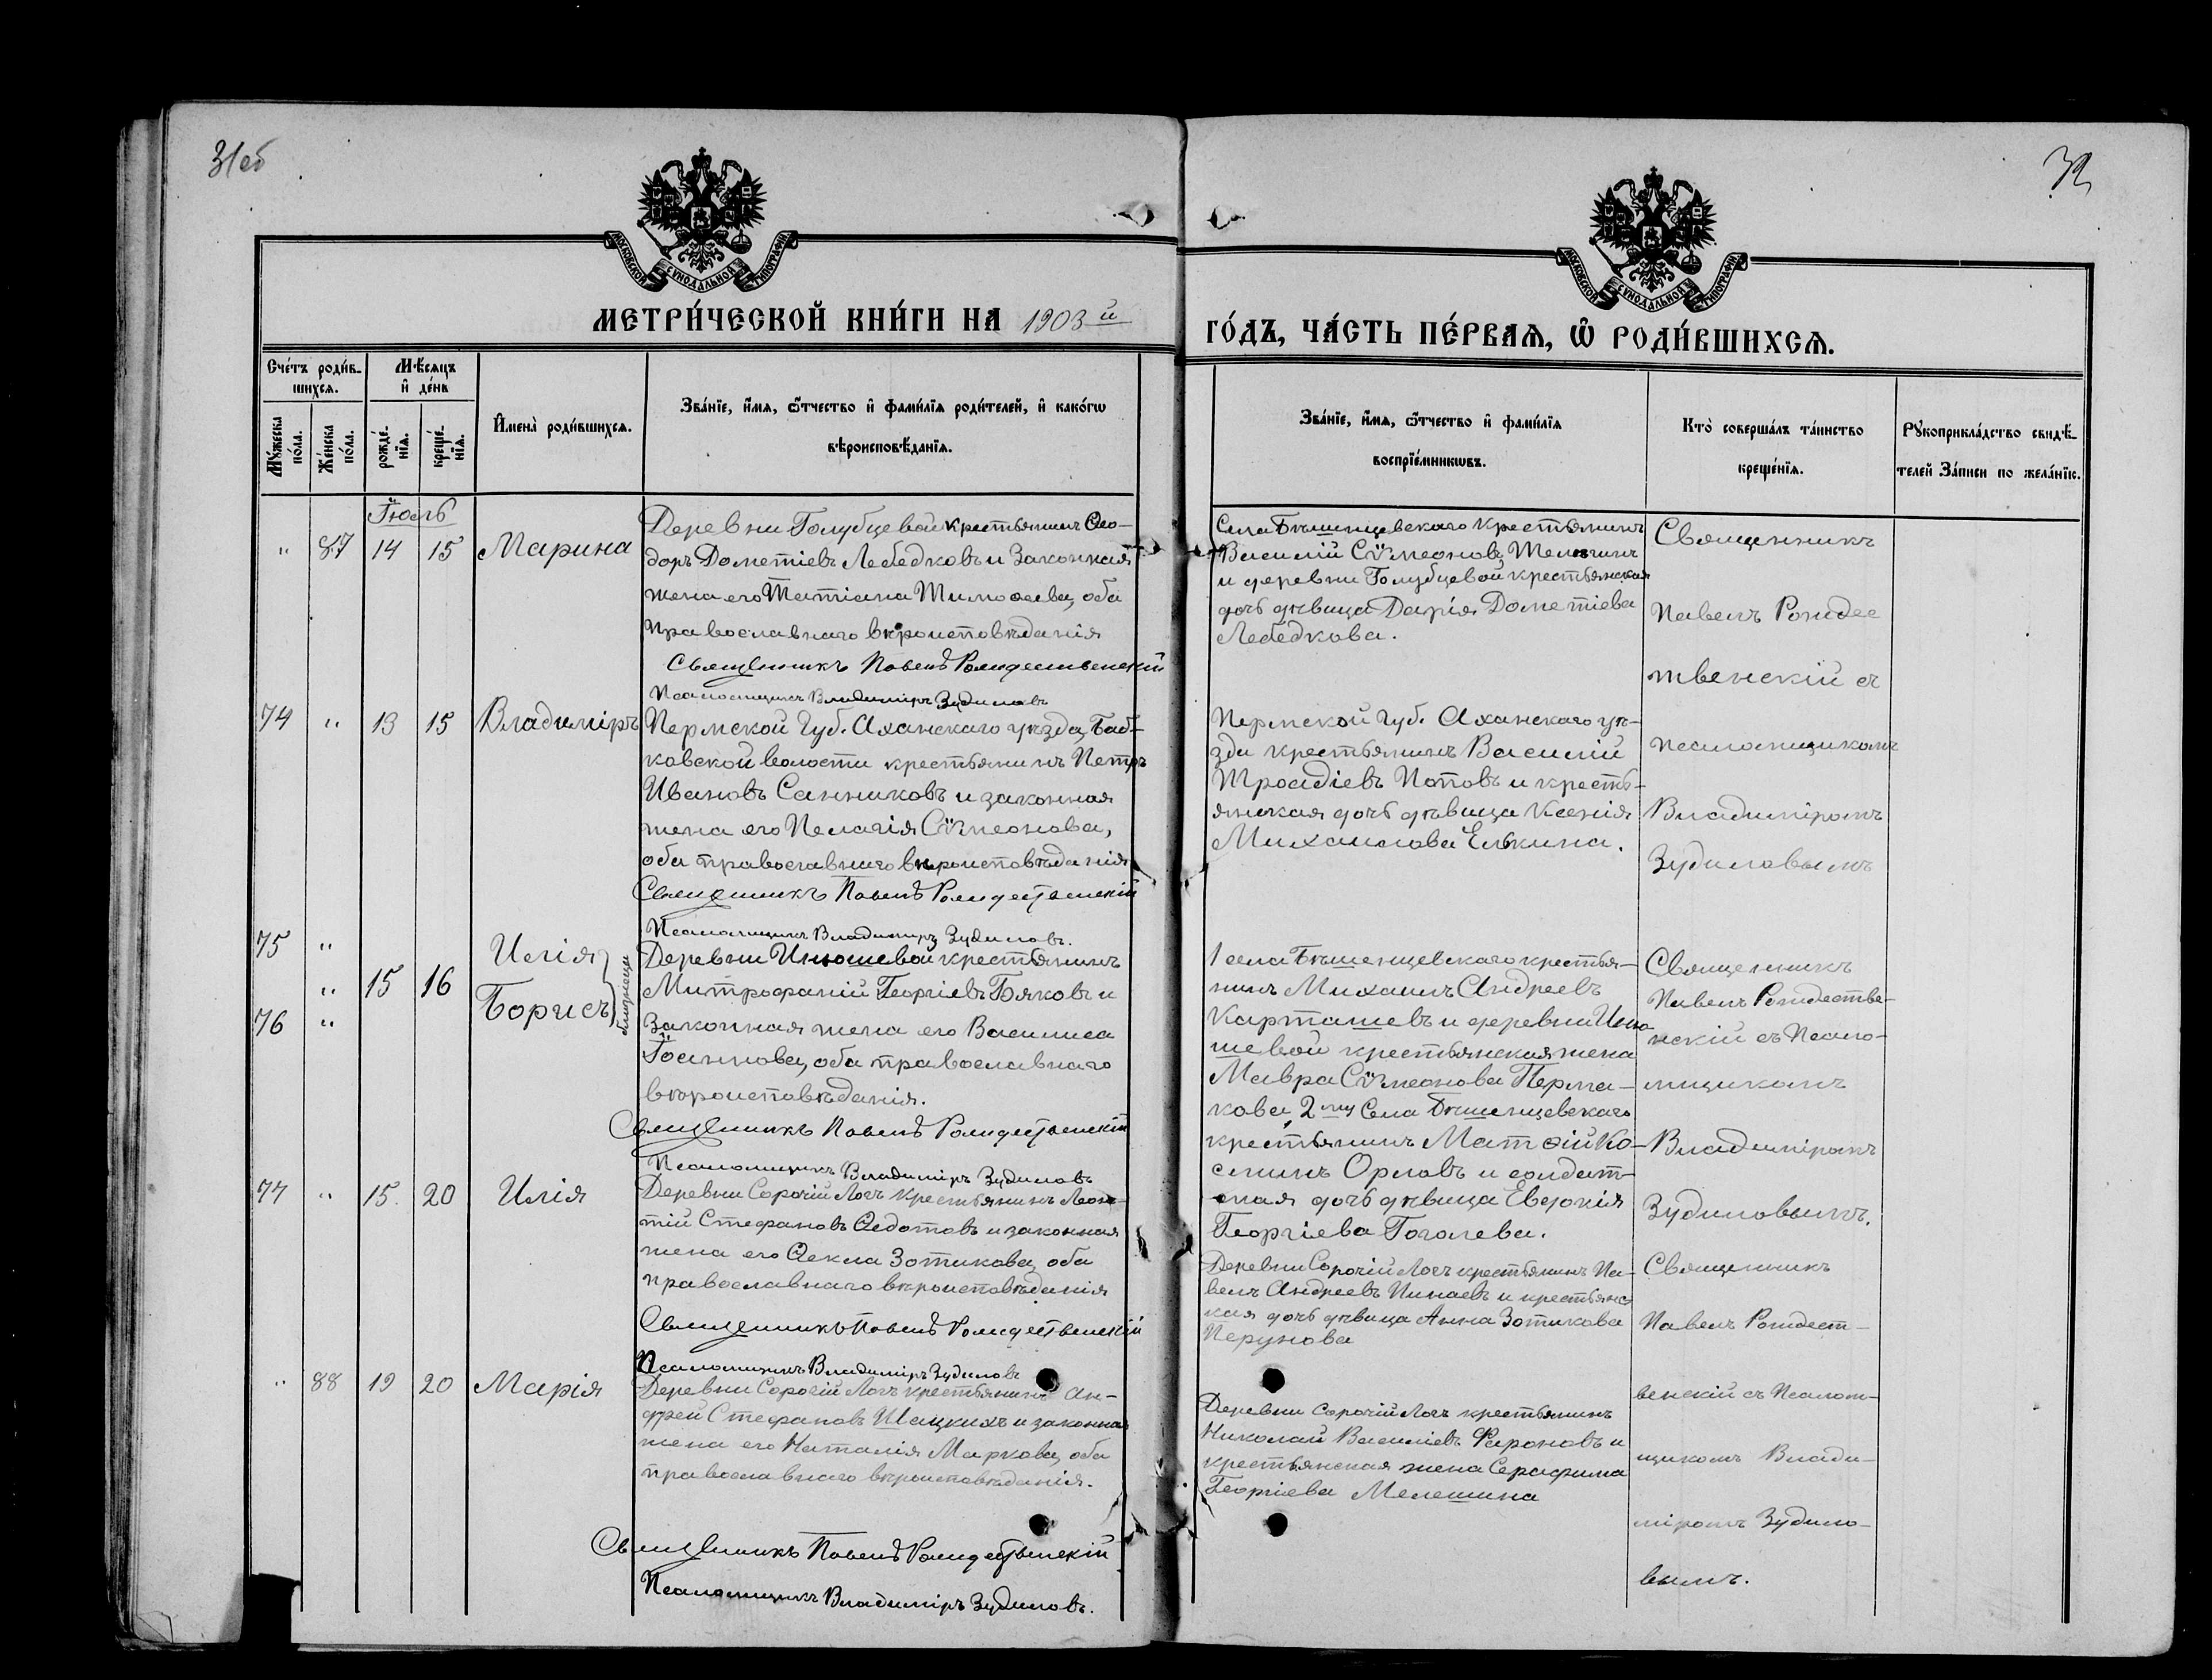 31об
32
МОСКОВСКОЙ СѴНОДАЛЬНОЙ ТИПОГРАФІИ
МОСКОВСКОЙ СѴНОДАЛЬНОЙ ТИПОГРАФІИ
МЕТРИ́ЧЕСКОЙ КНИ́ГИ НА 1903 й
ГО́ДЪ, ЧА́СТЬ ПЕ́РВАѦ, Ѡ҆ РОДИ́ВШИХСѦ.
Сче́тъ роди́в-
шихсѧ.
Мꙋ́жеска
по́ла.
Же́нска
по́ла.
Мѣ́сѧцъ
и҆ де́нь
рожде́-
нїѧ.
креще́-
нїѧ.
И҆мена̀ роди́вшихсѧ.
Зва́нїе, и҆́мѧ, ѻ҆́тчество и҆ фами́лїѧ роди́телей, и҆ како́гѡ
вѣроисповѣ́данїѧ.
Зва́нїе, и҆́мѧ, ѻ҆́тчество и҆ фами́лїѧ
воспрїе́мникѡвъ.
Кто̀ соверша́лъ та́инство
креще́нїѧ.
Рꙋкоприкла́дство свидѣ́-
телей За́писи по жела́нїю.
Іюль
" 87 14 15 Марина
Деревни Голубцевой крестьянинъ Ѳео-
доръ Дометіевъ Лебедковъ и законная
жена его Татіана Тимоѳеева, оба
православнаго вѣроисповѣданія
Священникъ Павелъ Рождественскій
Псаломщикъ Владиміръ Зудиловъ
Села Бѣшенцевскаго крестьянинъ
Василій Сѵмеоновъ
и деревни Голубцевой крестьянская
дочь дѣвица Дарія Дометіева
Лебедкова.
Священникъ
Павелъ Рождес
твенскій съ
псаломщикомъ
Владиміромъ
Зудиловымъ
74 " 13 15 Владиміръ
Пермской Губ. Оханскаго уѣзда, Баб-
ковской волости крестьянинъ Петръ
Ивановъ Санниковъ и законная
жена его Пелагія Сѵмеонова,
оба православнаго вѣроисповѣданія
Священникъ Павелъ Рождественскій
Псаломщикъ Владиміръ Зудиловъ.
Пермской Губ. Оханскаго уѣ-
зда крестьянинъ Василій
Троадіевъ Поповъ и кресть-
янская дочь дѣвица Ксенія
Михаилова Елькина.
75 "
" 15 16
76 "
Илія
Борисъ
близнецы
Деревни Инюшевой крестьянинъ
Митрофаній Георгіевъ Бяковъ и
законная жена его Василиса
Іоаннова, оба православнаго
вѣроисповѣданія.
Священникъ Павелъ Рождественскій
Псаломщикъ Владиміръ Зудиловъ
1 села Бѣшенцевскаго крестья-
нинъ Михаилъ Андреевъ
Карташевъ и деревни Иню-
шевой крестьянская жена
Мавра Сѵмеонова Перма-
кова, 2му Села Бѣшенцевскаго
крестьянинъ Матѳій Ко-
сминъ Орловъ и солдат-
ская дочь дѣвица Евдокія
Георгіева Гоголева.
Священникъ
Павелъ Рождестве-
нскій съ Псало-
мщикомъ
Владиміромъ
Зудиловымъ.
77 " 15. 20 Илія
Деревни Сорочій Логъ крестьянинъ Леон-
тій Стефановъ Ѳедотовъ и законная
жена его Ѳекла Зотикова, оба
православнаго вѣроисповѣданія
Священникъ Павелъ Рождественскій
Псаломщикъ Владиміръ Зудиловъ
Деревни Сорочій Логъ крестьянинъ Па-
велъ Андреевъ Пинаевъ и крестьянс
кая дочь дѣвица Анна Зотикова
Перунова
Священникъ
Павелъ Рождест-
венскій съ Псалом-
щикомъ Влади-
міромъ Зудило-
вымъ.
" 88 19 20 Марія
Деревни Сорочій Логъ крестьянинъ Ан-
дрей Стефановъ Шацкихъ и законная
жена его Наталія Маркова, оба
православнаго вѣроисповѣданія.
Священникъ Павелъ Рождественскій
Псаломщикъ Владиміръ Зудиловъ.
Деревни Сорочій Логъ крестьянинъ
Николай Василіевъ Фароновъ и
крестьянская жена Серафима
Георгіева Мелешина